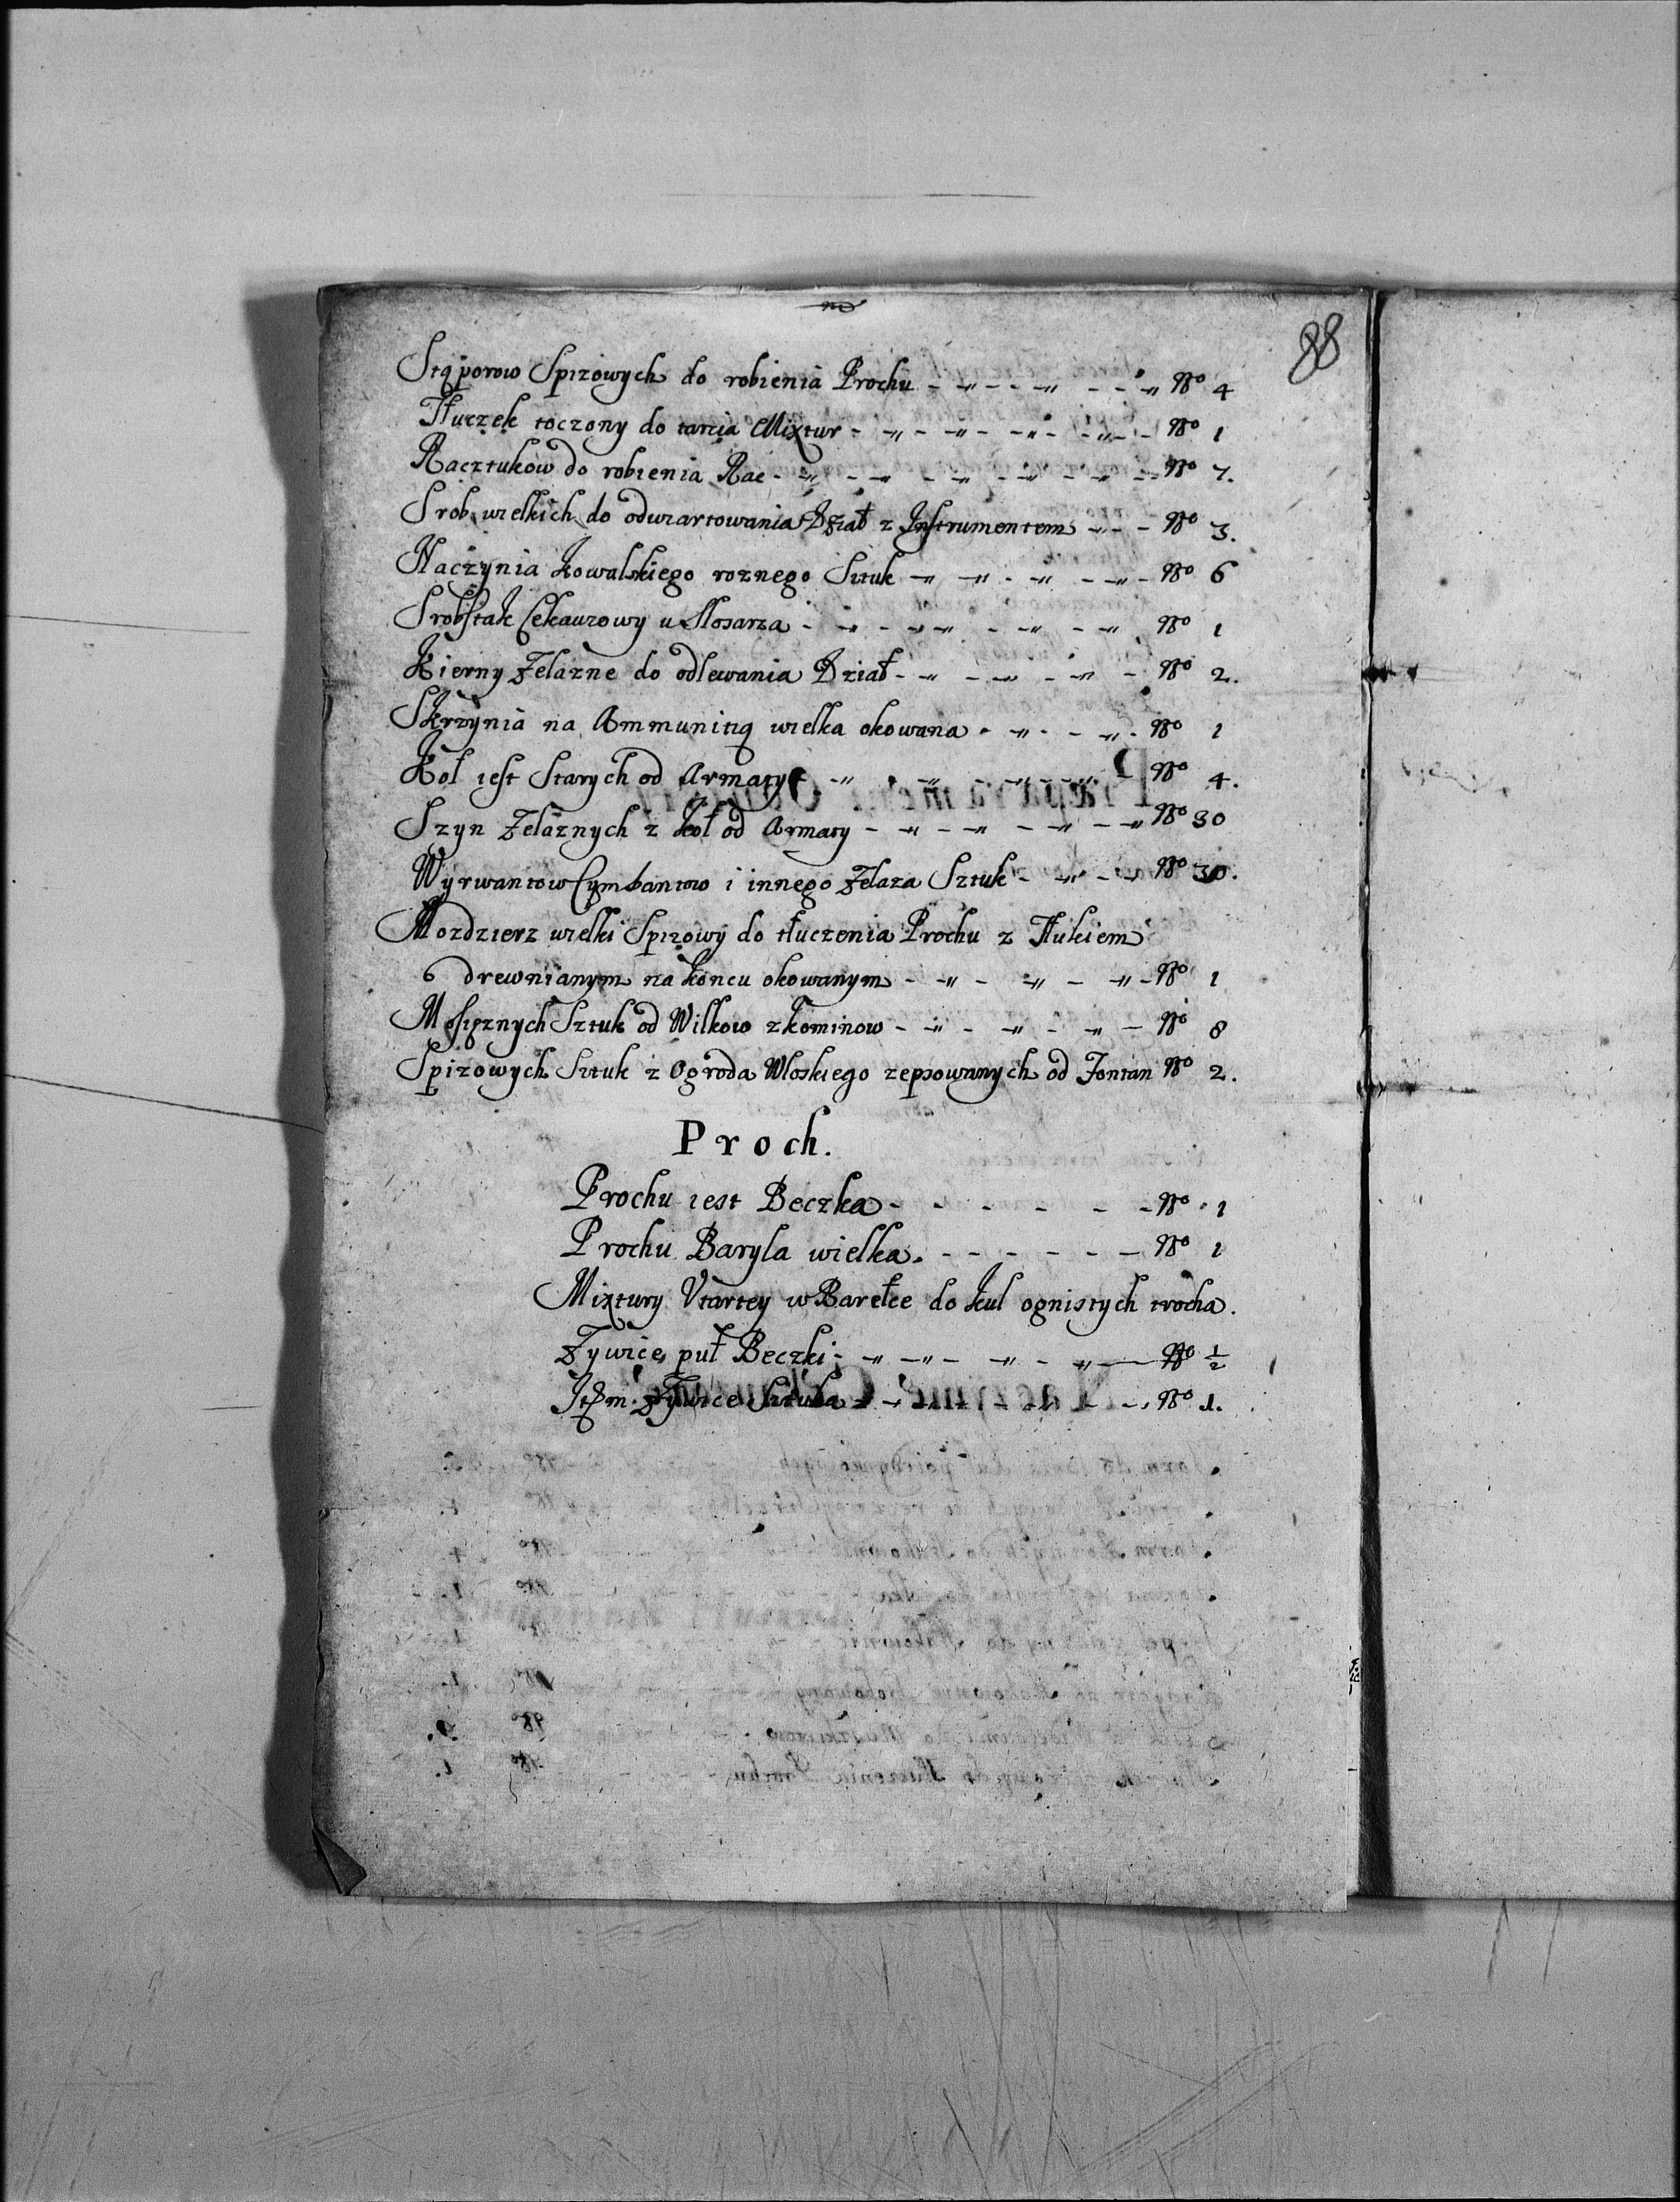 88
Stąporow Spizowych do robienia Prochu - - - - - - - No 4
Tłuczek toczony do tarcia Mixtur - - - - - - - No 1
Racztukow do robienia Rac - - - - - - - No 7.
Srob wielkich do odwiartowania Dział z Instrumentem - - - No 3.
Naczynia Kowalskiego roznego Sztuk - - - - - No 6
Srobsztak Cekauzowy u Slosarza - - - - - - No 1
Kierny Zelazne do odlewania Dział - - - - - No 2.
Skrzynia na Ammunitią wielka okowana - - - - No 1
Koł iest Starych od Armaty - - - - - No 4.
Szyn Zelaznych z Koł od Armaty - - - - - No 30
Wyrwantow Cymbantow i innego Zelaza Sztuk - - - No 30.
Mozdzierz wielki Spizowy do tłuczenia Prochu z Tłukiem
drewnianym na koncu okowanym - - - - - No 1
Mosiężnych Sztuk od Wilkow z kominow - - - - - No 8
Spizowych Sztuk z Ogroda Wloskiego zepsowanych od Fontan No 2.
Proch.
Prochu iest Beczka - - - - - - No 1
Prochu Baryla wielka. - - - - - - No 1
Mixtury Utartey w Barełce do Kul ognistych trocha.
Zywice puł Beczki - - - - - - No 1/2
Item Zywice Sztuka - - - - - - No 1.